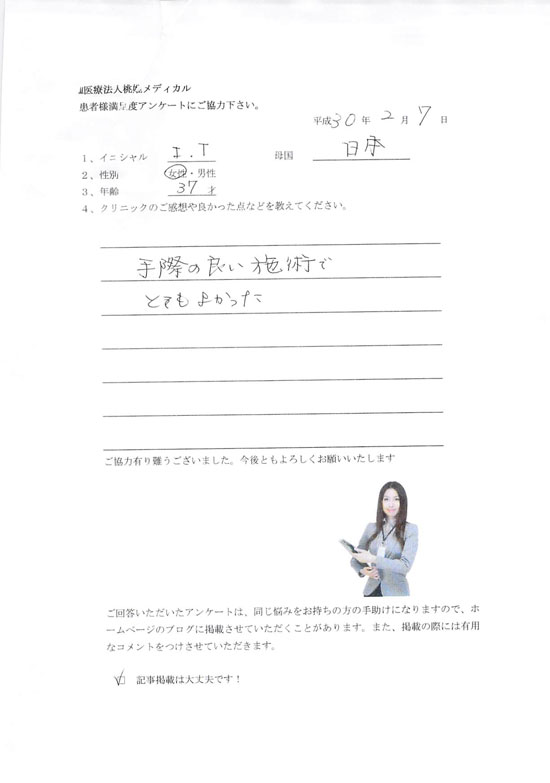 医療法人桃姫メディカル
患者様満足度アンケートにご協力下さい。
平成30年 2月 7日
1、イニシャル I.T 母国 日本
2、性別 女性・男性
3、年齢 37才
4、クリニックのご感想や良かった点などを教えてください。
手際の良い施術で
とてもよかった
ご協力有り難うございました。今後ともよろしくお願いいたします
ご回答いただいたアンケートは、同じ悩みをお持ちの方の手助けになりますので、ホ
ームページのブログに掲載させていただくことがあります。また、掲載の際には有用
なコメントをつけさせていただきます。
記事掲載は大丈夫です！